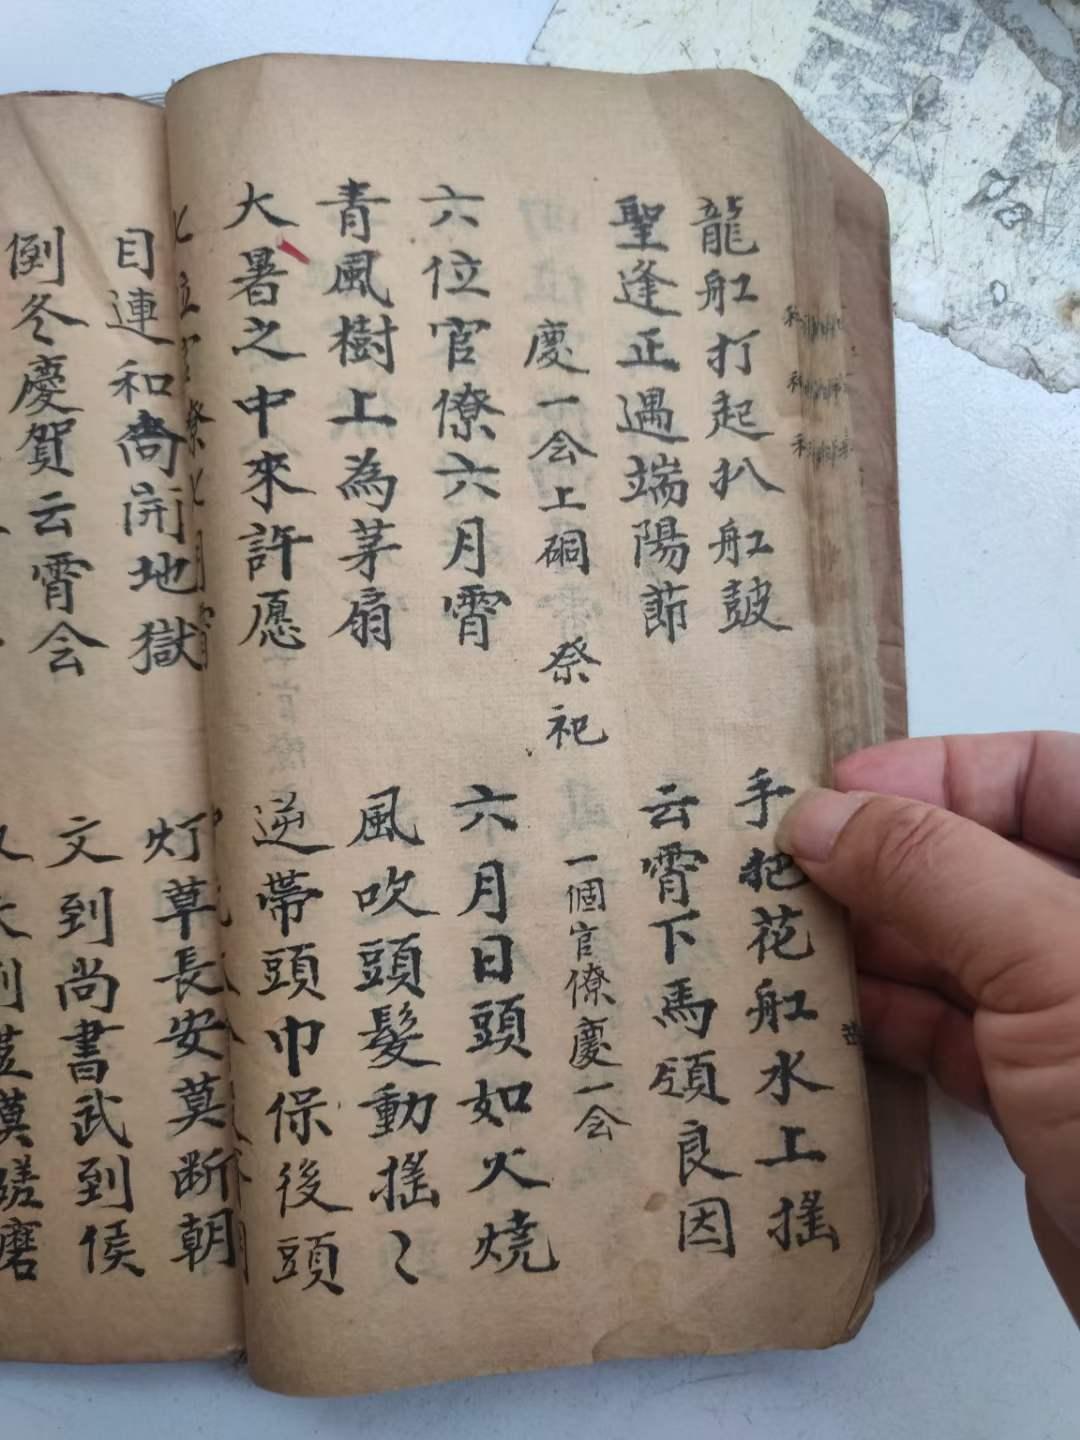 龍舡打起扒舡鼓 手把花舡水上搖
聖逢正遇端陽節 云霄下馬領良因
慶一会上硐 祭祀 一個官僚慶一会
六位官僚六月霄 六月日頭如火燒
青風樹上為茅扇 風吹頭髮動搖〻
大暑之中來許愿 逆帶頭巾保後頭
目連和尚開地獄 灯草長安莫断朝
倒冬慶賀云霄会 文到尚書武到侯